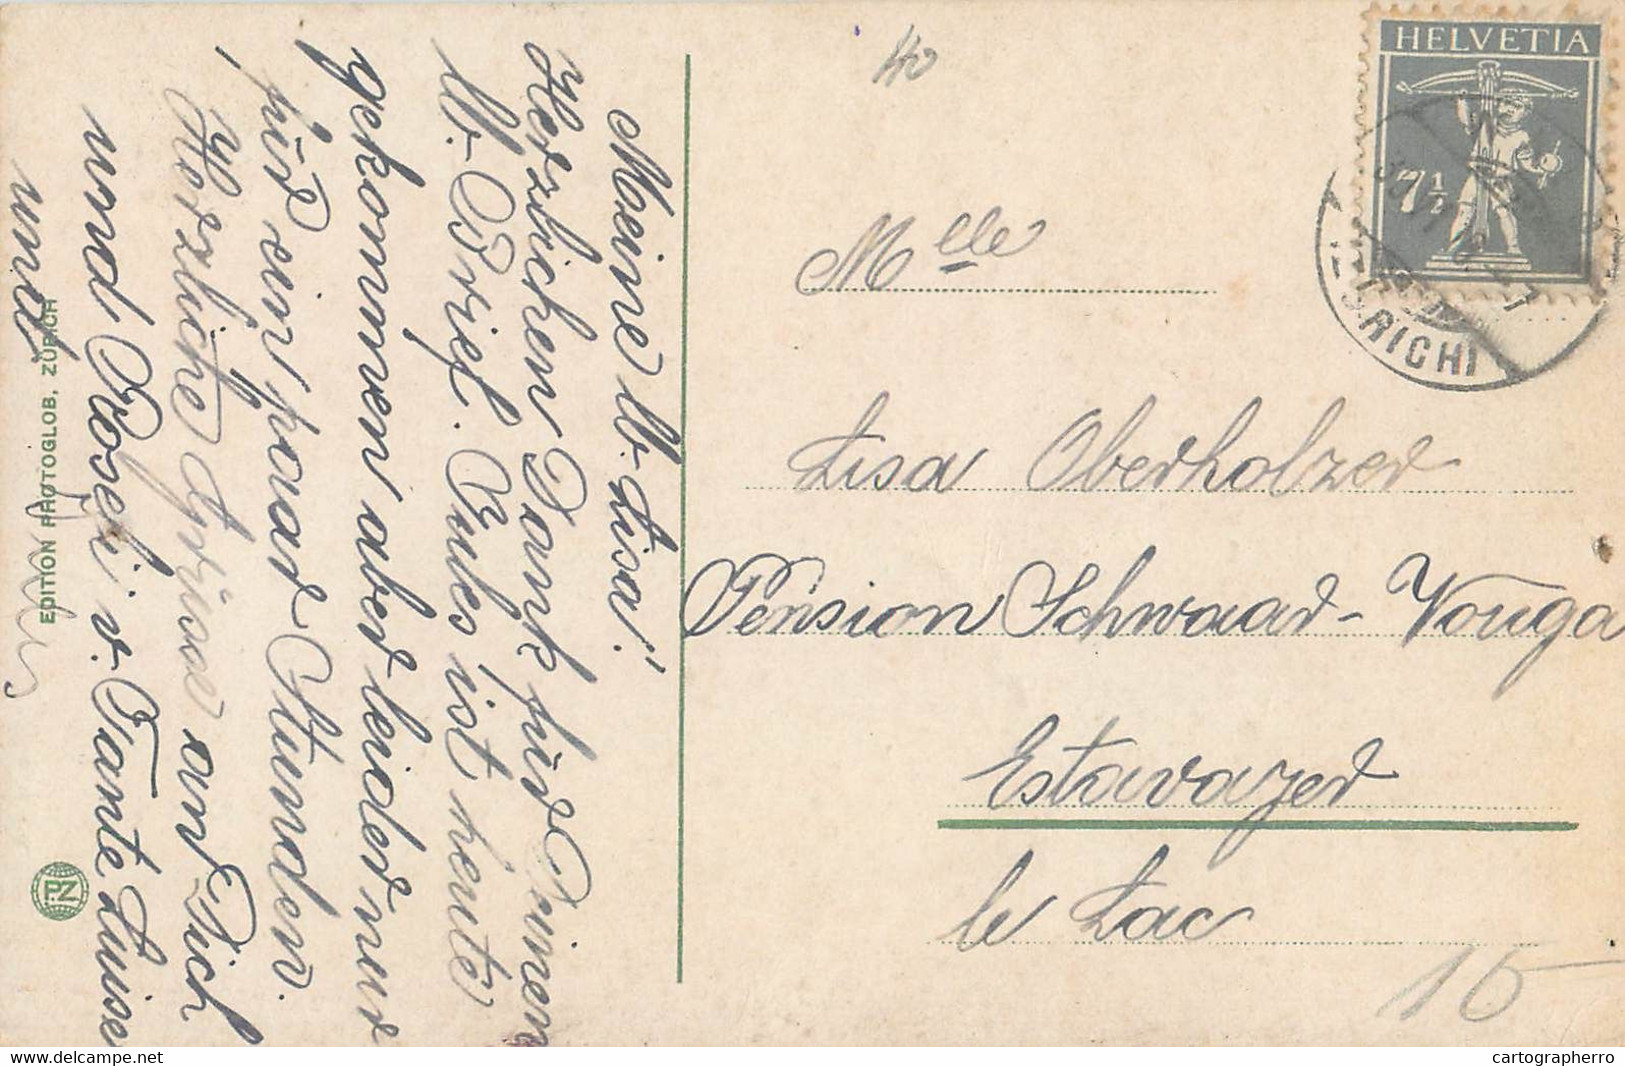 Meine lb. Lisa!
Herzlichen Dank für Deinen
lb. Brief. Emles ist heute
gekommen aber leider nur
für ein paar Stunden.
Herzliche Grüsse an Dich
und Roseli v. Tante Luise
und
EDITION PHOTOGLOB, ZÜRICH
PZ
40
HELVETIA
7½
ZÜRICH 1
Mlle
Lisa Oberholzer
Pension Schwaar-Vouga
Estavayer
le Lac
15
cartographerro
delcampe.net